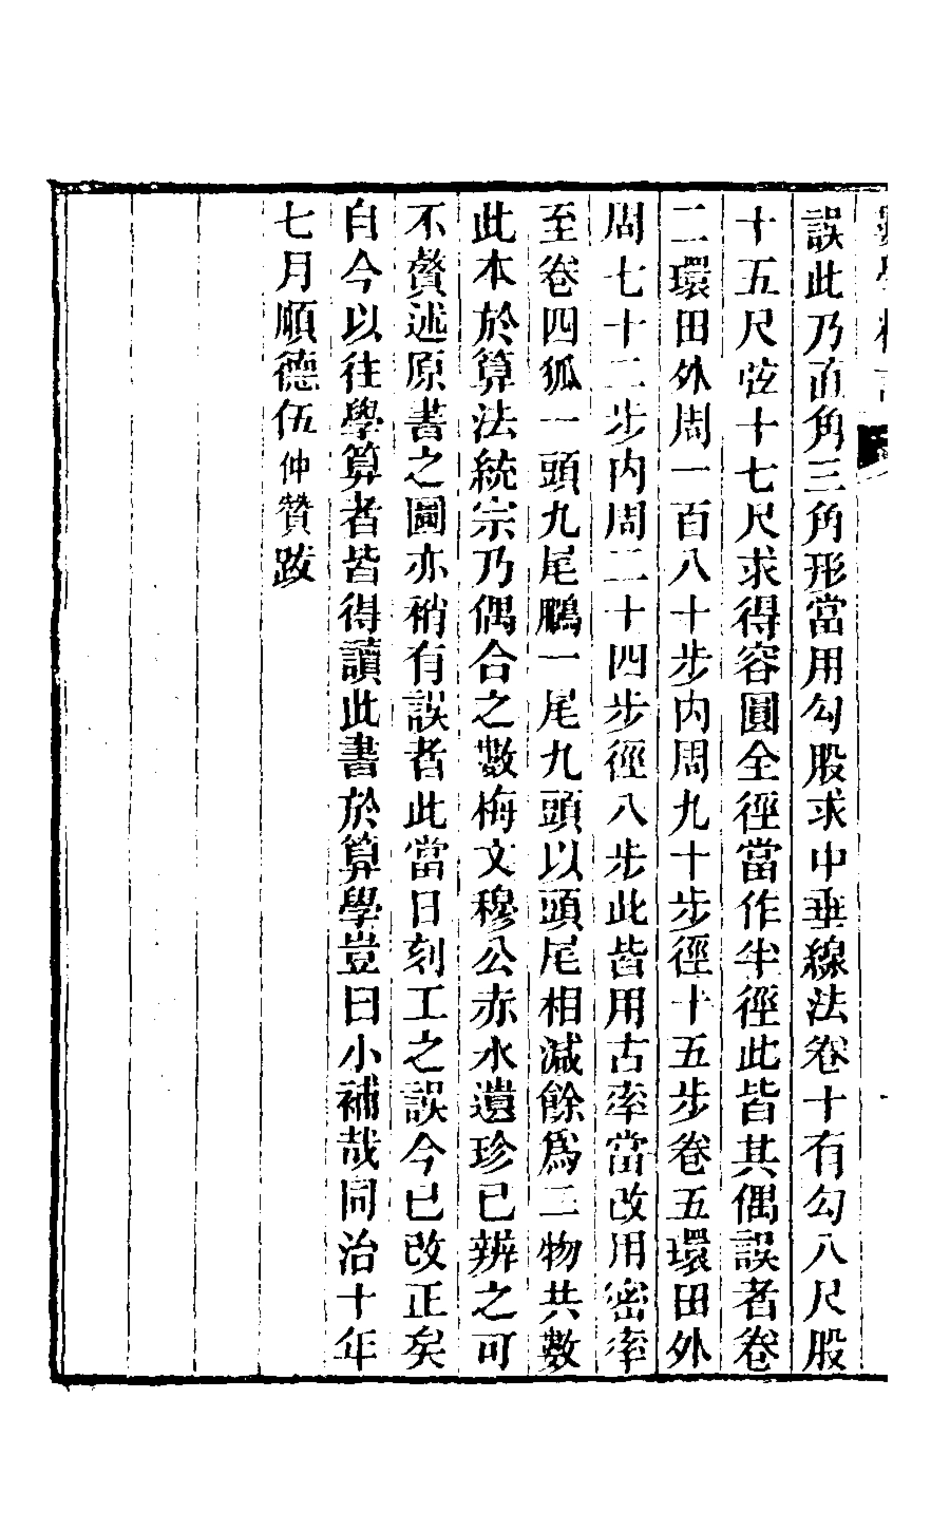 誤此乃直角三角形當用勾股求中垂線法卷十有勾八尺股
十五尺弦十七尺求得容圓全徑當作半徑此皆其偶誤者卷
二環田外周一百八十步內周九十步徑十五步卷五環田外
周七十二步內周二十四步徑八步此皆用古率當改用密率
至卷四狐一頭九尾鵬一尾九頭以頭尾相減餘爲二物共數
此本於算法統宗乃偶合之數梅文穆公赤水遺珍已辨之可
不贅述原書之圖亦稍有誤者此當日刻工之誤今已改正矣
自今以往學算者皆得讀此書於算學豈曰小補哉同治十年
七月順德伍仲贊跋